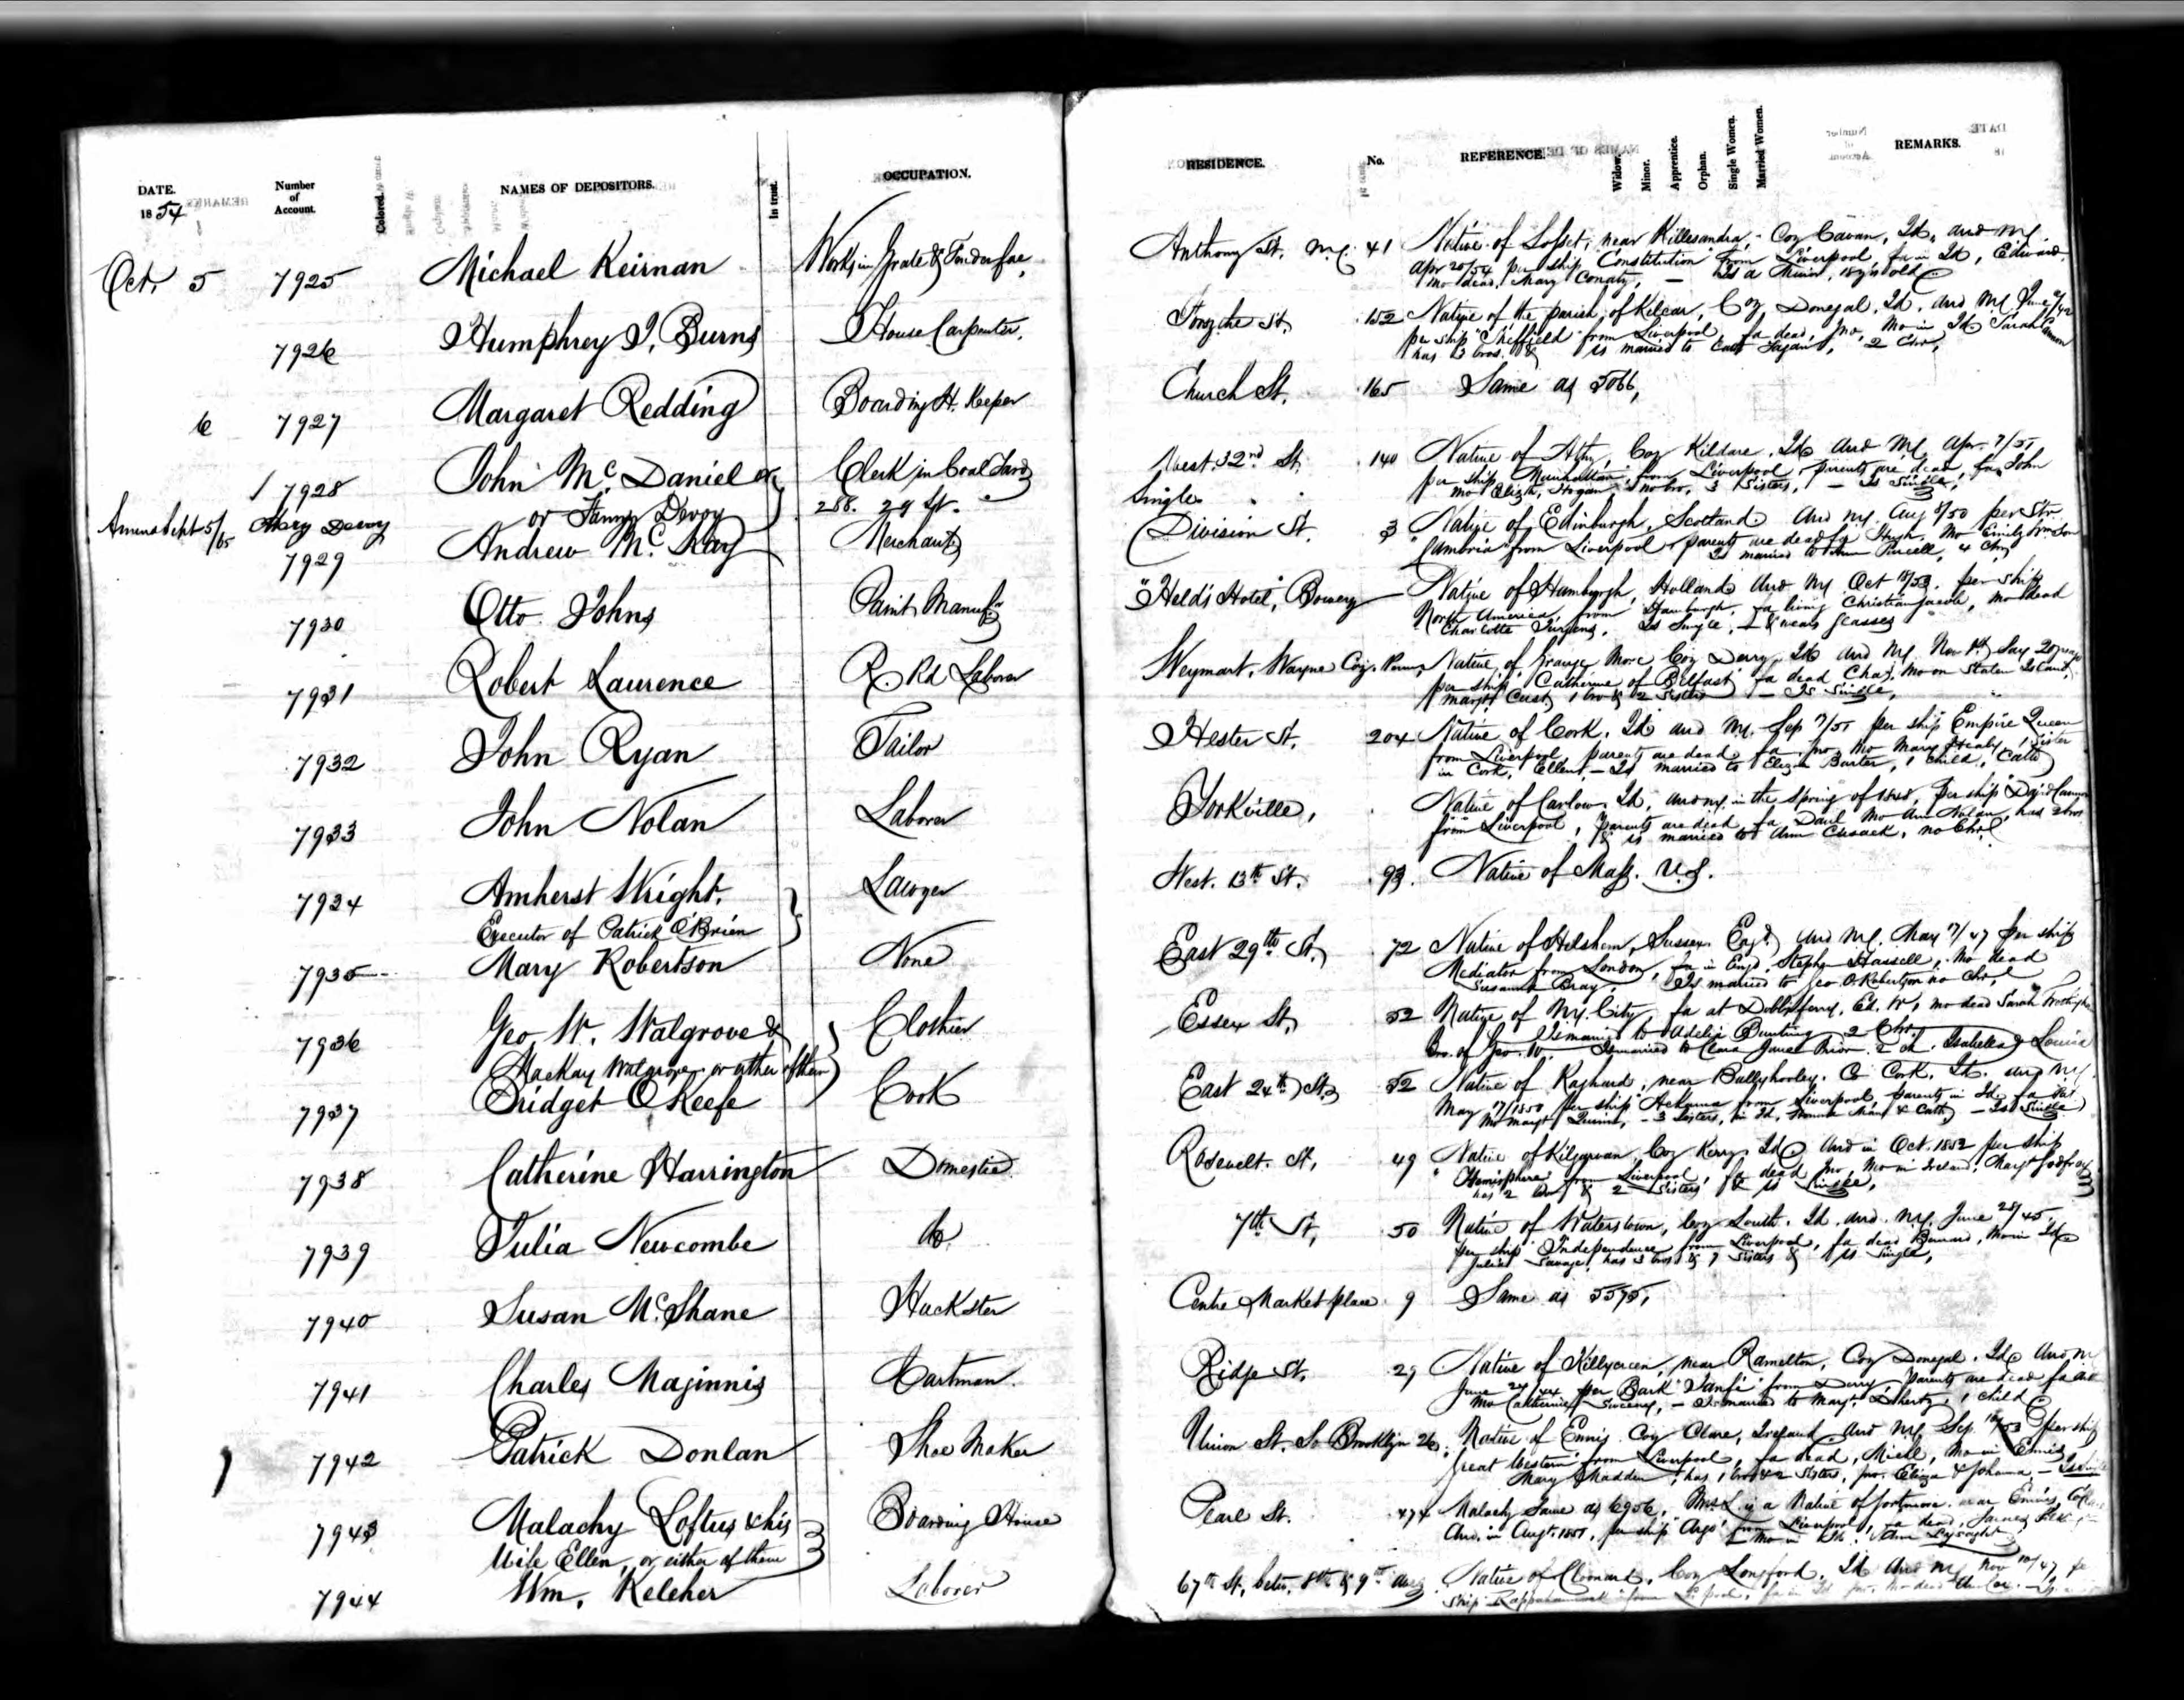 DATE.
1854
Number
of
Account.
Colored.
NAMES OF DEPOSITORS.
In trust.
OCCUPATION.
RESIDENCE.
No.
REFERENCE.
Widow.
Minor.
Apprentice.
Orphan.
Single Women.
Married Women.
REMARKS.
Oct. 5 7925 Michael Keirnan Works in Grate & Fender fac. Anthony St. N.Y. 41 Native of Losset, near Killesandra, Coy Cavan, Id. and NY.
Apr 20/54 per ship Constitution from Liverpool, fa in Id, Edward.
mo dead, Mary Conaty, — Is a Minor, 18 y's old
7926 Humphrey J. Burns House Carpenter. Forsythe St, 152 Native of the parish of Kilcar, Coy Donegal. Id. and NY June
per ship "Sheffield" from Liverpool, fa dead, Jno, Mo in Id Sarah
has 3 bros. & is married to Cath Fagan, 2 Chn,
6 7927 Margaret Redding Boarding H. Keeper Church St, 165 Same as 5066,
7928 John McDaniel or Clerk in Coal Yard West 32nd St, 140 Native of Athy, Coy Kildare, Id and NY Apr 7/51,
per ship Manhattan, from Liverpool, parents are dead, fa John
mo Eliz'h, Hogan, no bro, 3 Sisters, — Is Single,
or Fanny Devoy 288. 29 St. Single
Mary Devoy
7929 Andrew McKay Merchant Division St. 3 Native of Edinburgh, Scotland and NY Aug 8/50 per Str.
"Cambria" from Liverpool, parents are dead fa Hugh. Mo Emily
Is married to Ann Purcell, 4 Chn,
7930 Otto Johns Paint Manufr "Held's Hotel," Bowery Native of Hamburgh, Holland and NY Oct 18/53. per ship
North America, from Hamburgh, fa living Christian Jacob, mo dead
Charlotte Jurgens. Is Single, & wears glasses
7931 Robert Laurence R. Rd Laborer Weymart, Wayne Coy. Penn, Native of Grange More Coy Derry, Id and NY. Nov Say 20
per ship Catherine of Belfast fa dead Chas. Mo on Staten Island,
margt 1 bro & 2 Sisters — Is Single,
7932 John Ryan Tailor Hester St. 204 Native of Cork. Id and NY. Sep 7/51 per ship Empire Queen
from Liverpool, parents are dead fa Jno, Mo Mary Healy, 1 Sister
in Cork, Ellen, — Is married to Eliza Barter, 1 Child, Cath
7933 John Nolan Laborer Yorkville, Native of Carlow. Id, and NY in the Spring of 1848, per ship David Cannon
from Liverpool, parents are dead, fa Danl Mo Ann Nolan, had 2 bros
& is married to Ann Cusack, no Chn
7934 Amherst Wright, Lawyer West. 13th St. 93. Native of Mass. U.S.
Executor of Patrick O'Brien
7935 Mary Robertson None East 29th St, 72 Native of Helshem, Sussex Engd and NY. May 17/47 per ship
Mediator from London, fa in Engd. Stephn Hassell, Mo dead
Susannah Bray, Is married to Geo O. Robertson no Chn,
7936 Geo. W. Walgrove & Clothier Essex St, 52 Native of NY. City, fa at Dobbsferry, Ed. W, mo dead Sarah
Is married to Adelia Bunting 2 Chn.
Mackay Walgrove or either of them Bro. of Geo. W. Is married to Clara Jane Prior 2 ch. Isabella & Louisa
7937 Bridget O'Keefe Cook East 24th St, 52 Native of Raghard, near Ballyhooley. Co Cork. Id. and NY.
May 17/1850 per ship from Liverpool, parents in Id fa
Mo Margt Quinn, — 3 Sisters, in Id, & Cath, — Is Single
7938 Catherine Harrington Domestic Rosevelt. St, 49 Native of Kilgarvan, Coy Kerry Id and in Oct. 1852 per ship
"Hemisphere" from Liverpool, fa dead Jno, Mo in Ireland, Margt Godfrey
has 2 bros & 2 Sisters & is Single,
7939 Julia Newcombe do. 7th St, 50 Native of Waterstown, Coy Louth. Id. and. NY. June 28/45,
per ship Independence from Liverpool, fa dead Bernard, Mo in Id
Julia Savage, has 3 bros & 7 Sisters & is Single,
7940 Susan McShane Huckster Centre Market place 9 Same as 5575,
7941 Charles Maginnis Cartman. Ridge St. 29 Native of near Ramelton, Coy Donegal. Id and N
June 24/44 per Bark from Derry parents are dead fa
Mo Catherine Sweeny, — Is married to Margt. Doherty, 1 child
7942 Patrick Donlan Shoe Maker Union St. So Brooklyn 26. Native of Ennis Coy Clare, Ireland and NY Sep 18/53 per ship
Great Western from Liverpool, fa dead, Michl, Mo in Ennis
Mary Madden, has 1 bro & 2 Sisters, Jno. Eliza & Johanna, — Is Single
7943 Malachy Loftus & his Boarding House Pearl St. 474 Malachy Same as 6956, Mrs L. is a Native of near Ennis,
Wife Ellen, or either of them And. in Augt. 1851, per ship "Argo" from Liverpool, fa dead, James
Mo in Id. Ann Lysaght
7944 Wm. Keleher Laborer 67th St, betw. 8th & 9th Avs Native of Coy Longford. Id and NY Nov 10/47
ship Rappahannock from L. pool, fa in Id Mo dead